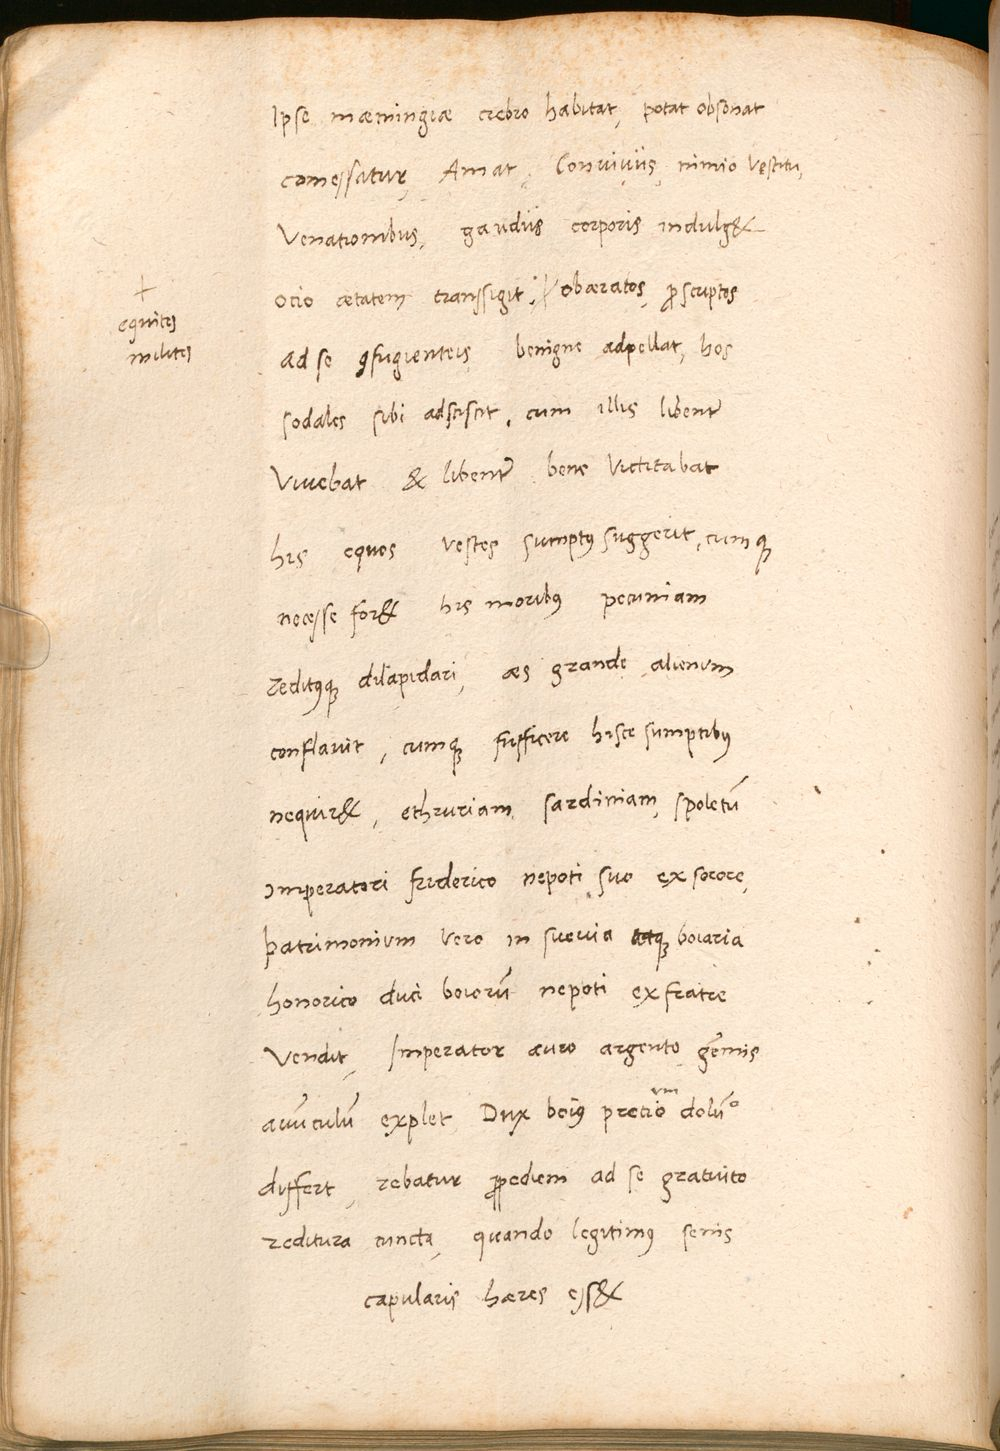 Ipse mæmingiæ crebro habitat, potat obsonat
comessatur, Amat, Conviviis, nimio vestitu,
Venationibus, gaudiis corporis indulg&
ocio ætatem transsigit; obæratos, ꝓscriptos
+
equites
milites
ad se ꝯfugienteis, benigne adpellat, hos
sodales sibi adsciscit, cum illis libent̄
Vivebat & libent̄ bene victitabat
his equos vestes sumptꝰ suggerit, cumqꝫ
necesse for& his moribꝰ pecuniam
reditꝰqꝫ dilapidari, æs grande alienum
conflavit, cumqꝫ sufficere hisce sumptibꝰ
nequir&, ethruriam, sardiniam, spoletū
imperatori friderico nepoti suo ex sorore,
patrimonium vero in suevia atqꝫ boiaria
honorico duci boiorū nepoti ex fratre
Vendit, Imperator auro argento gēmis
avūculū explet Dux boiꝰ precio um dolū°
differt, rebatur ꝓpediem ad se gratuito
reditura cuncta, quando legitimꝰ senis
capularis hæres ess&